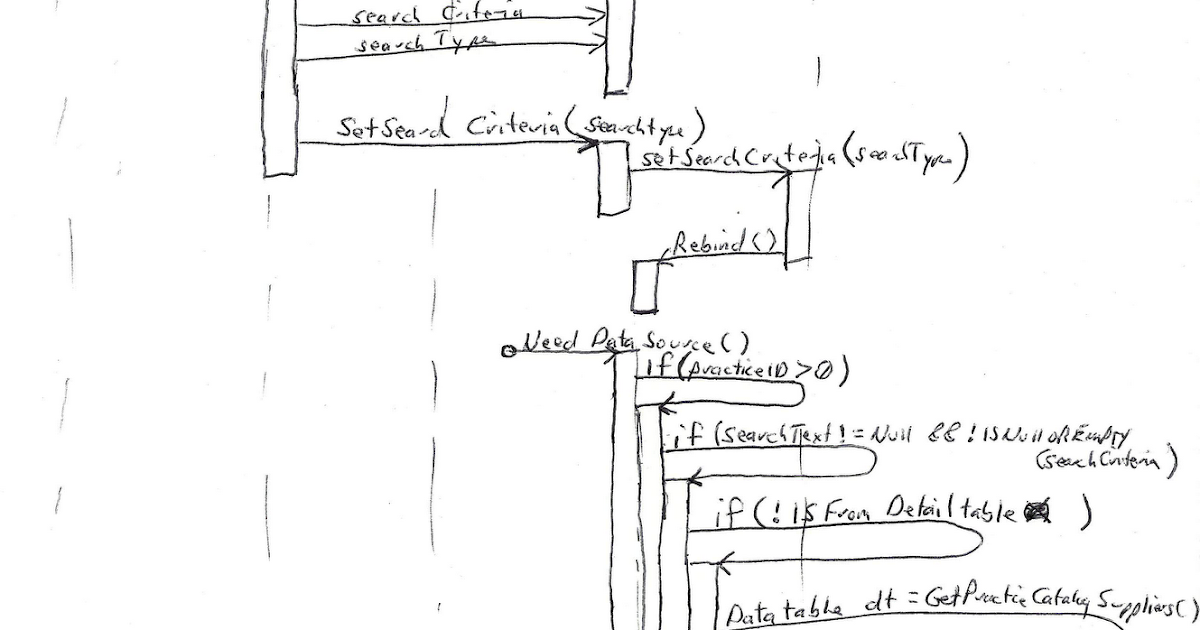 search Criteria
search Type
SetSearch Criteria (searchtype)
setSearchCriteria (searchType)
Rebind ()
Need Data Source ()
if (practiceID > 0)
if (SearchText != Null && ! IsNullOrEmpty
(searchCriteria)
if (! IsFrom Detail table )
Data table dt = GetPracticeCatalog Suppliers()